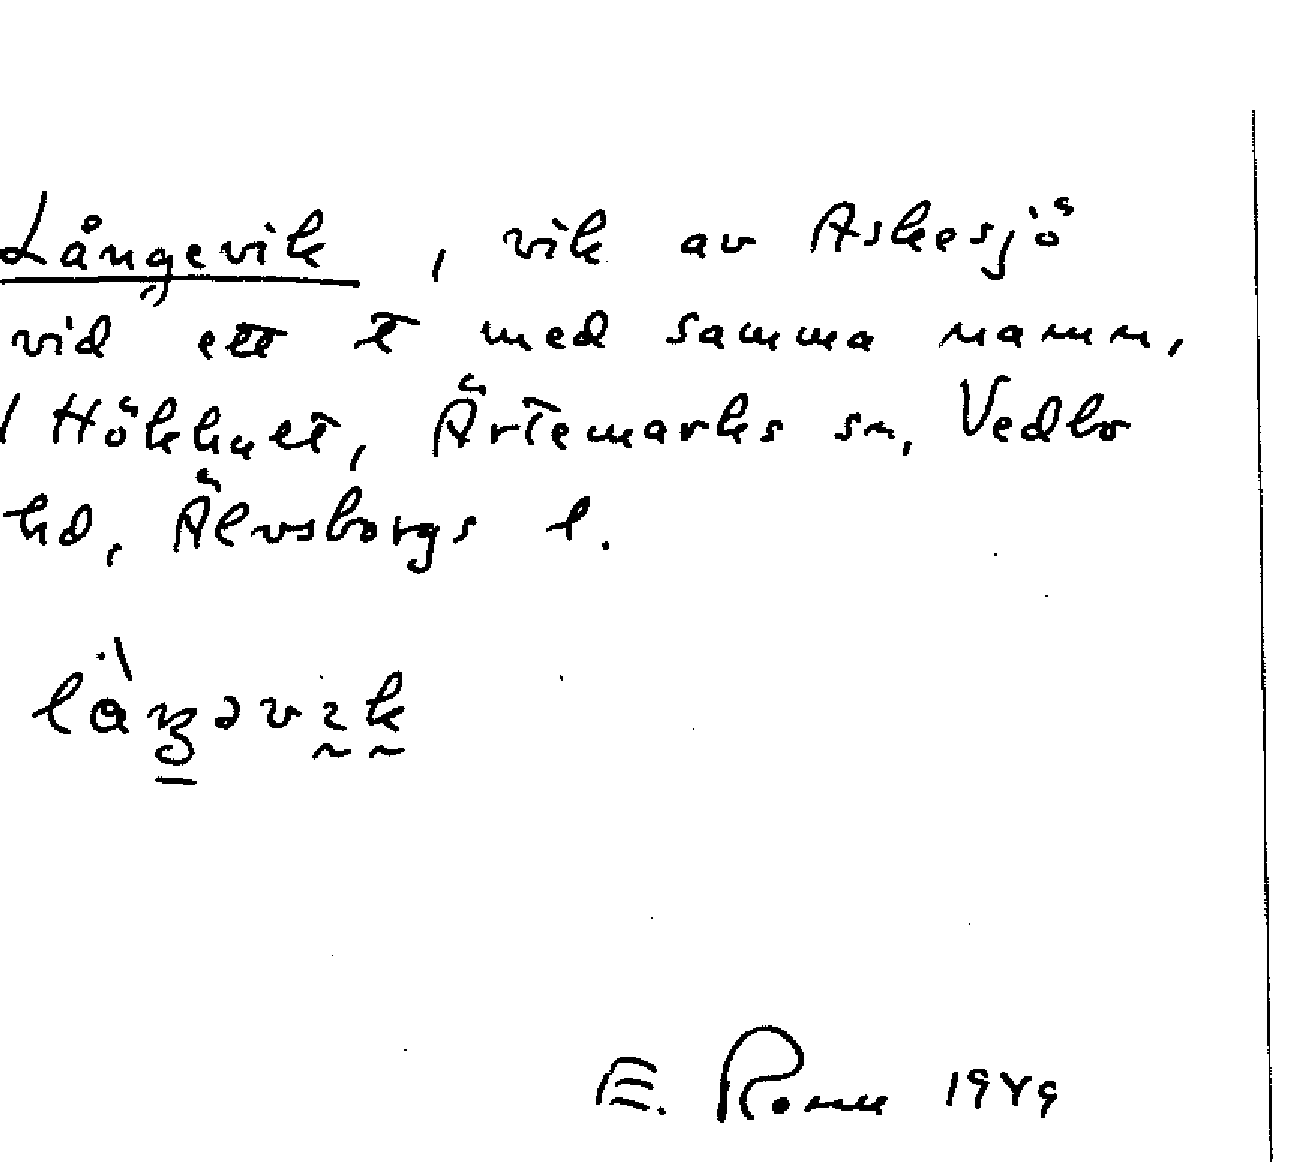 Långevik, vik av Askesjö
vid ett t med samma namn,
/ Hökhult, Ärtemarks sn, Vedbo
hd, Älvsborgs l.
E. 1949